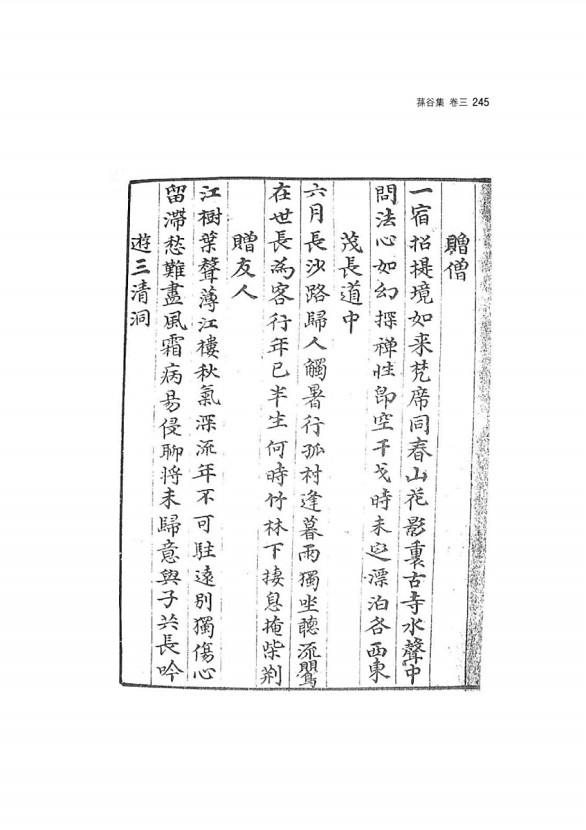 蓀谷集 卷三 245
贈僧
一宿招提境如来梵席同春山花影裏古寺水聲中
問法心如幻探禅性卽空干戈時未定漂泊各西東
茂長道中
六月長沙路歸人觸暑行孤村逢暮雨獨坐聽流鶯
在世長為客行年已半生何時竹林下捿息掩柴荆
贈友人
江樹葉聲薄江樓秋氣深流年不可駐遠別獨傷心
留滯愁難盡風霜病易侵聊将未歸意與子共長吟
遊三清洞